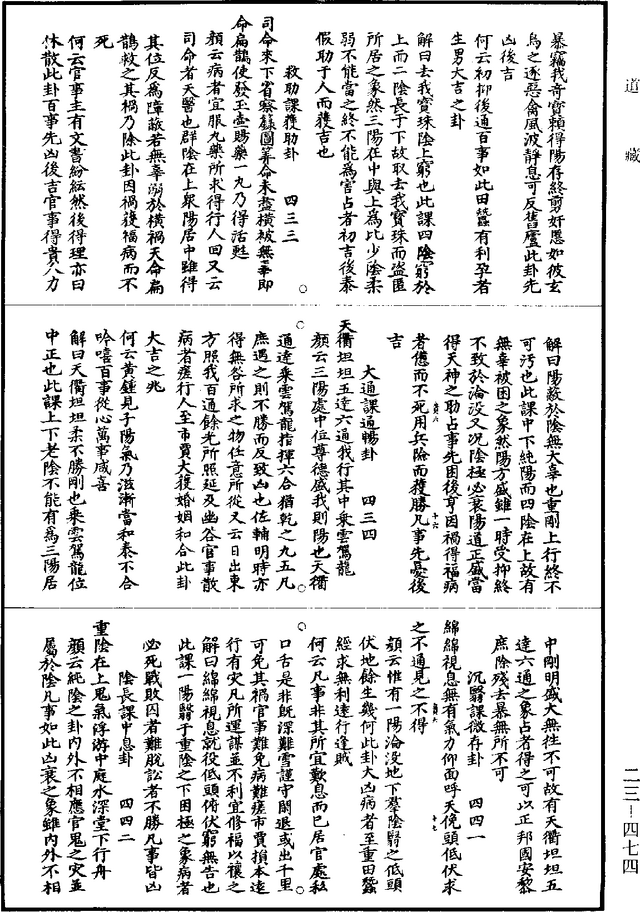 道藏
暴竊我奇寶賴得陽存終剪奸慝如彼玄
烏之逐惡禽風波靜息可反舊廬此卦先
凶後吉
何云初抑後通百事如此田蠶有利孕者
生男大吉之卦
解曰去我寶珠陰上窮也此課四陰窮於
上而二陰長于下故取去我寶珠而盜匿
所居之象然三陽在中與上為比少陰柔
弱不能當之終不能為害占者初吉後泰
假助于人而獲吉也
救助課獲助卦 四三三
司命來下省察錄圖筭命未盡橫被無辜即
命扁鵲使發玉壺賜藥一丸乃得活甦
顏云病者宜服丸藥所求得行人回又云
司命者天醫也群陰在上衆陽居中雖得
其位反為障蔽若無辜溺於橫禍天命扁
鵲救之其禍乃除此卦因禍後福病而不
死
何云官事主有文書紛紜然後得理亦曰
休散此卦百事先凶後吉官事得貴人力
解曰陽蔽於陰無大辜也重剛上行終不
可污也此課中下純陽而四陰在上故有
無辜被困之象然陽方盛雖一時受抑終
不致於淪没又况陰極必衰陽道正盛當
得天神之助占事先困後亨因禍得福病
者僊而不死用兵險而獲勝凡事先憂後
吉
大通課通暢卦 四三四
天衢坦坦五達六通我行其中乘雲駕龍
顏云三陽處中位尊德盛我則陽也天衢
通達乘雲駕龍指揮六合猶乾之九五凡
庶遇之則不勝而反致凶也佐輔明時亦
得無咎所求之物任意所從又云日出東
方照我百通餘光所照延及幽谷官事散
病者瘥行人至市賈大獲婚姻和合此卦
大吉之兆
何云黄鍾見子陽氣乃滋漸當和泰不合
吟嘻百事從心萬事咸喜
解曰天衢坦坦柔不勝剛也乘雲駕龍位
中正也此課上下老陰不能有為三陽居
中剛明盛大無往不可故有天衢坦坦五
達六通之象占者得之可以正邦國安黎
庶除殘去暴無所不可
沉翳課微存卦 四四一
綿綿視息無有氣力仰面呼天俛頭低伏求
之不通見之不得
顏云惟有一陽淪没地下羣陰翳之低頭
伏地餘生幾何此卦大凶病者至重田蠶
經求無利逹行逢賊
何云凡事非其所宜歎息而已居官處私
口舌是非旣深難雪謹守閉退或出千里
可免其禍官事難免病難瘥市賈損本逺
行有灾凡所運謀並不利宜修福以禳之
解曰綿綿視息就役低頭俯伏窮無告也
此課一陽翳于重陰之下困極之象病者
必死戰敗囚者難脫訟者不勝凡事皆凶
陰長課中息卦 四四二
重陰在上鬼氣浮游中庭水深堂下行舟
顏云純陰之卦內外不相應官鬼之灾並
屬於陰凡事如此凶衰之象雖內外不相
二三—四七四